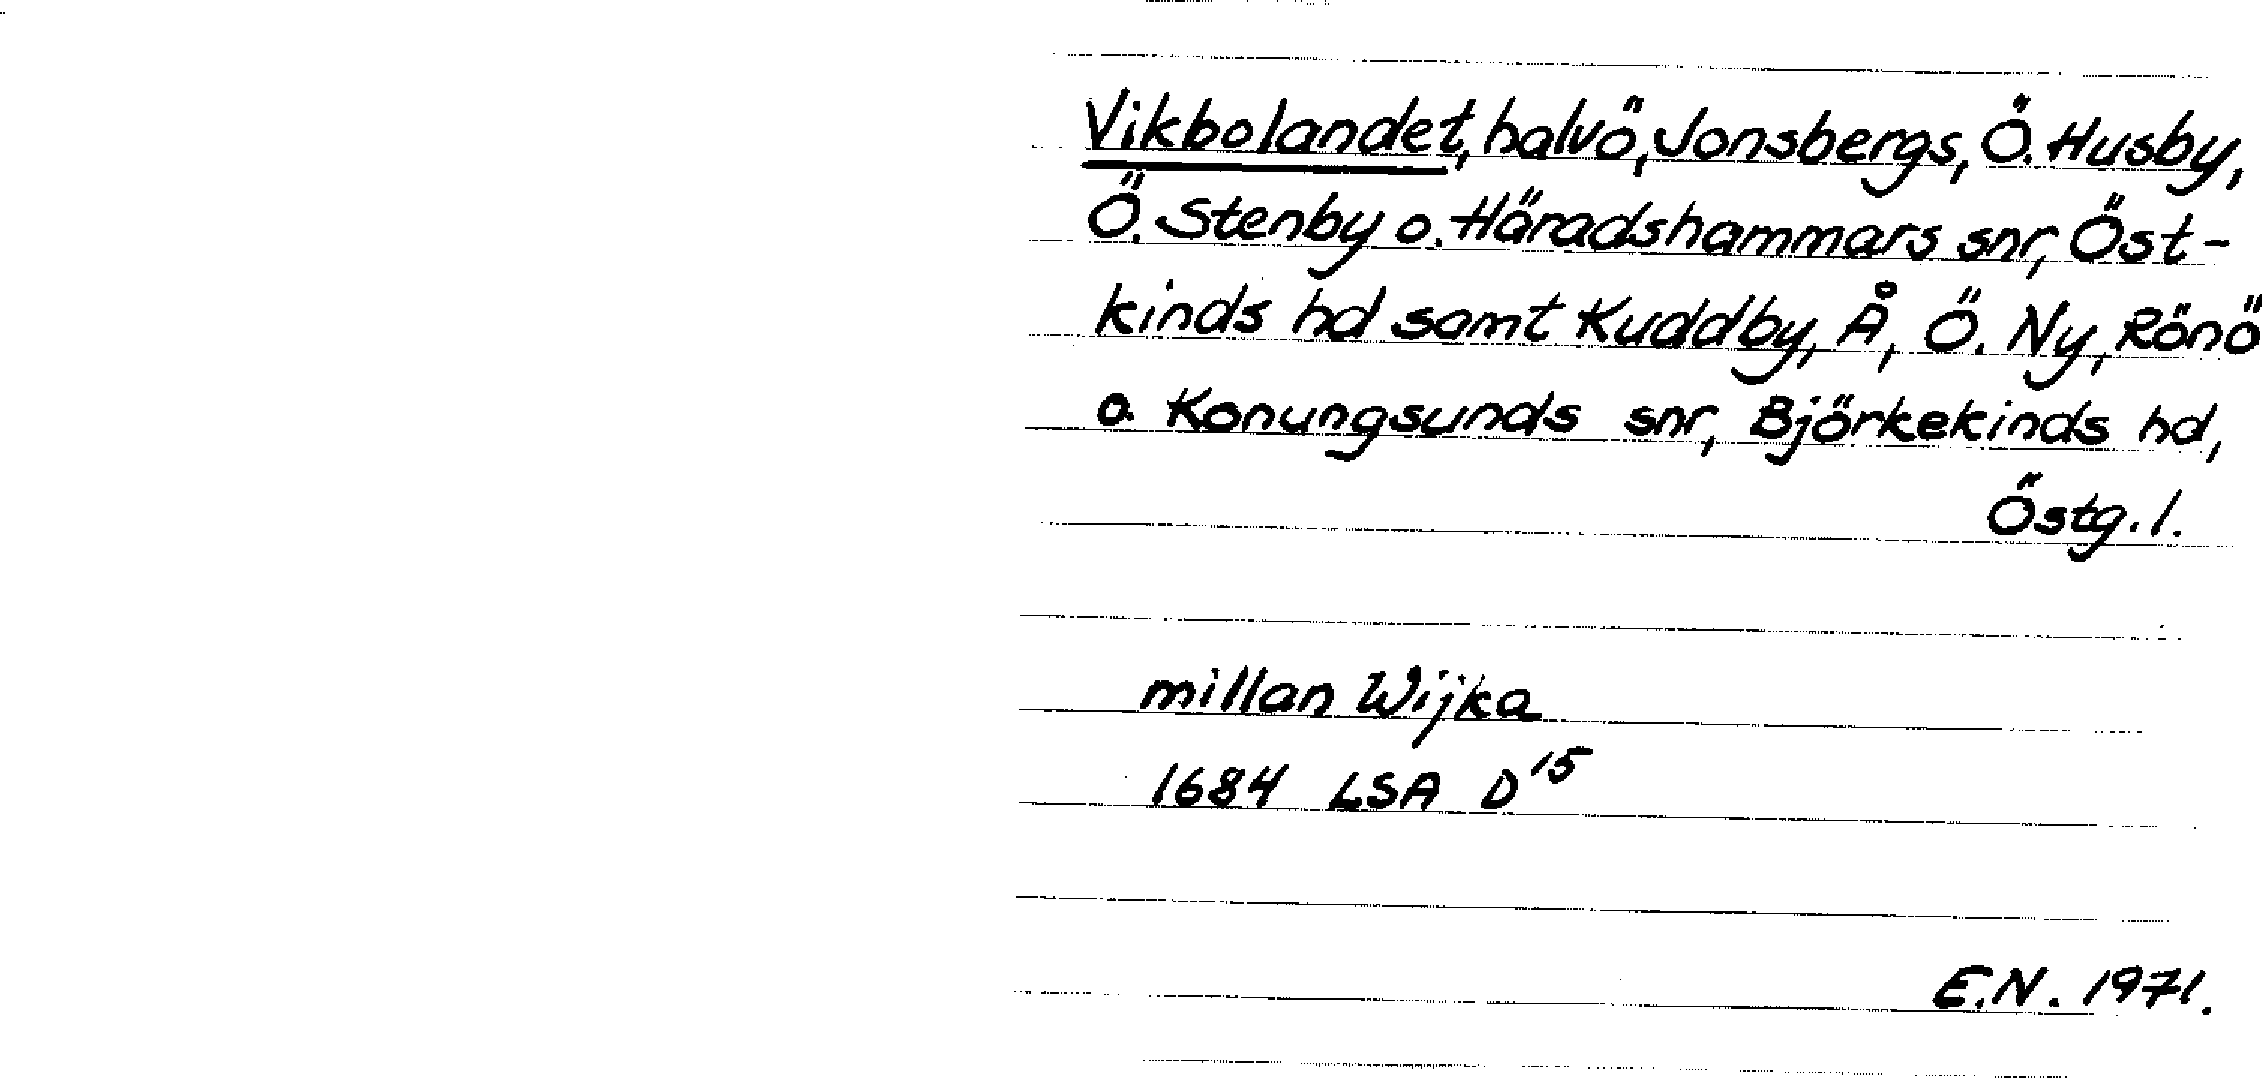 Vikbolandet, halvö, Jonsbergs, Ö. Husby,
Ö. Stenby o. Häradshammars snr, Öst-
kinds hd samt Kuddby, Å, Ö. Ny, Rönö
o. Konungsunds snr, Björkekinds hd,
Östg. l.
millan Wijka
1684 LSA D15
E.N. 1971.